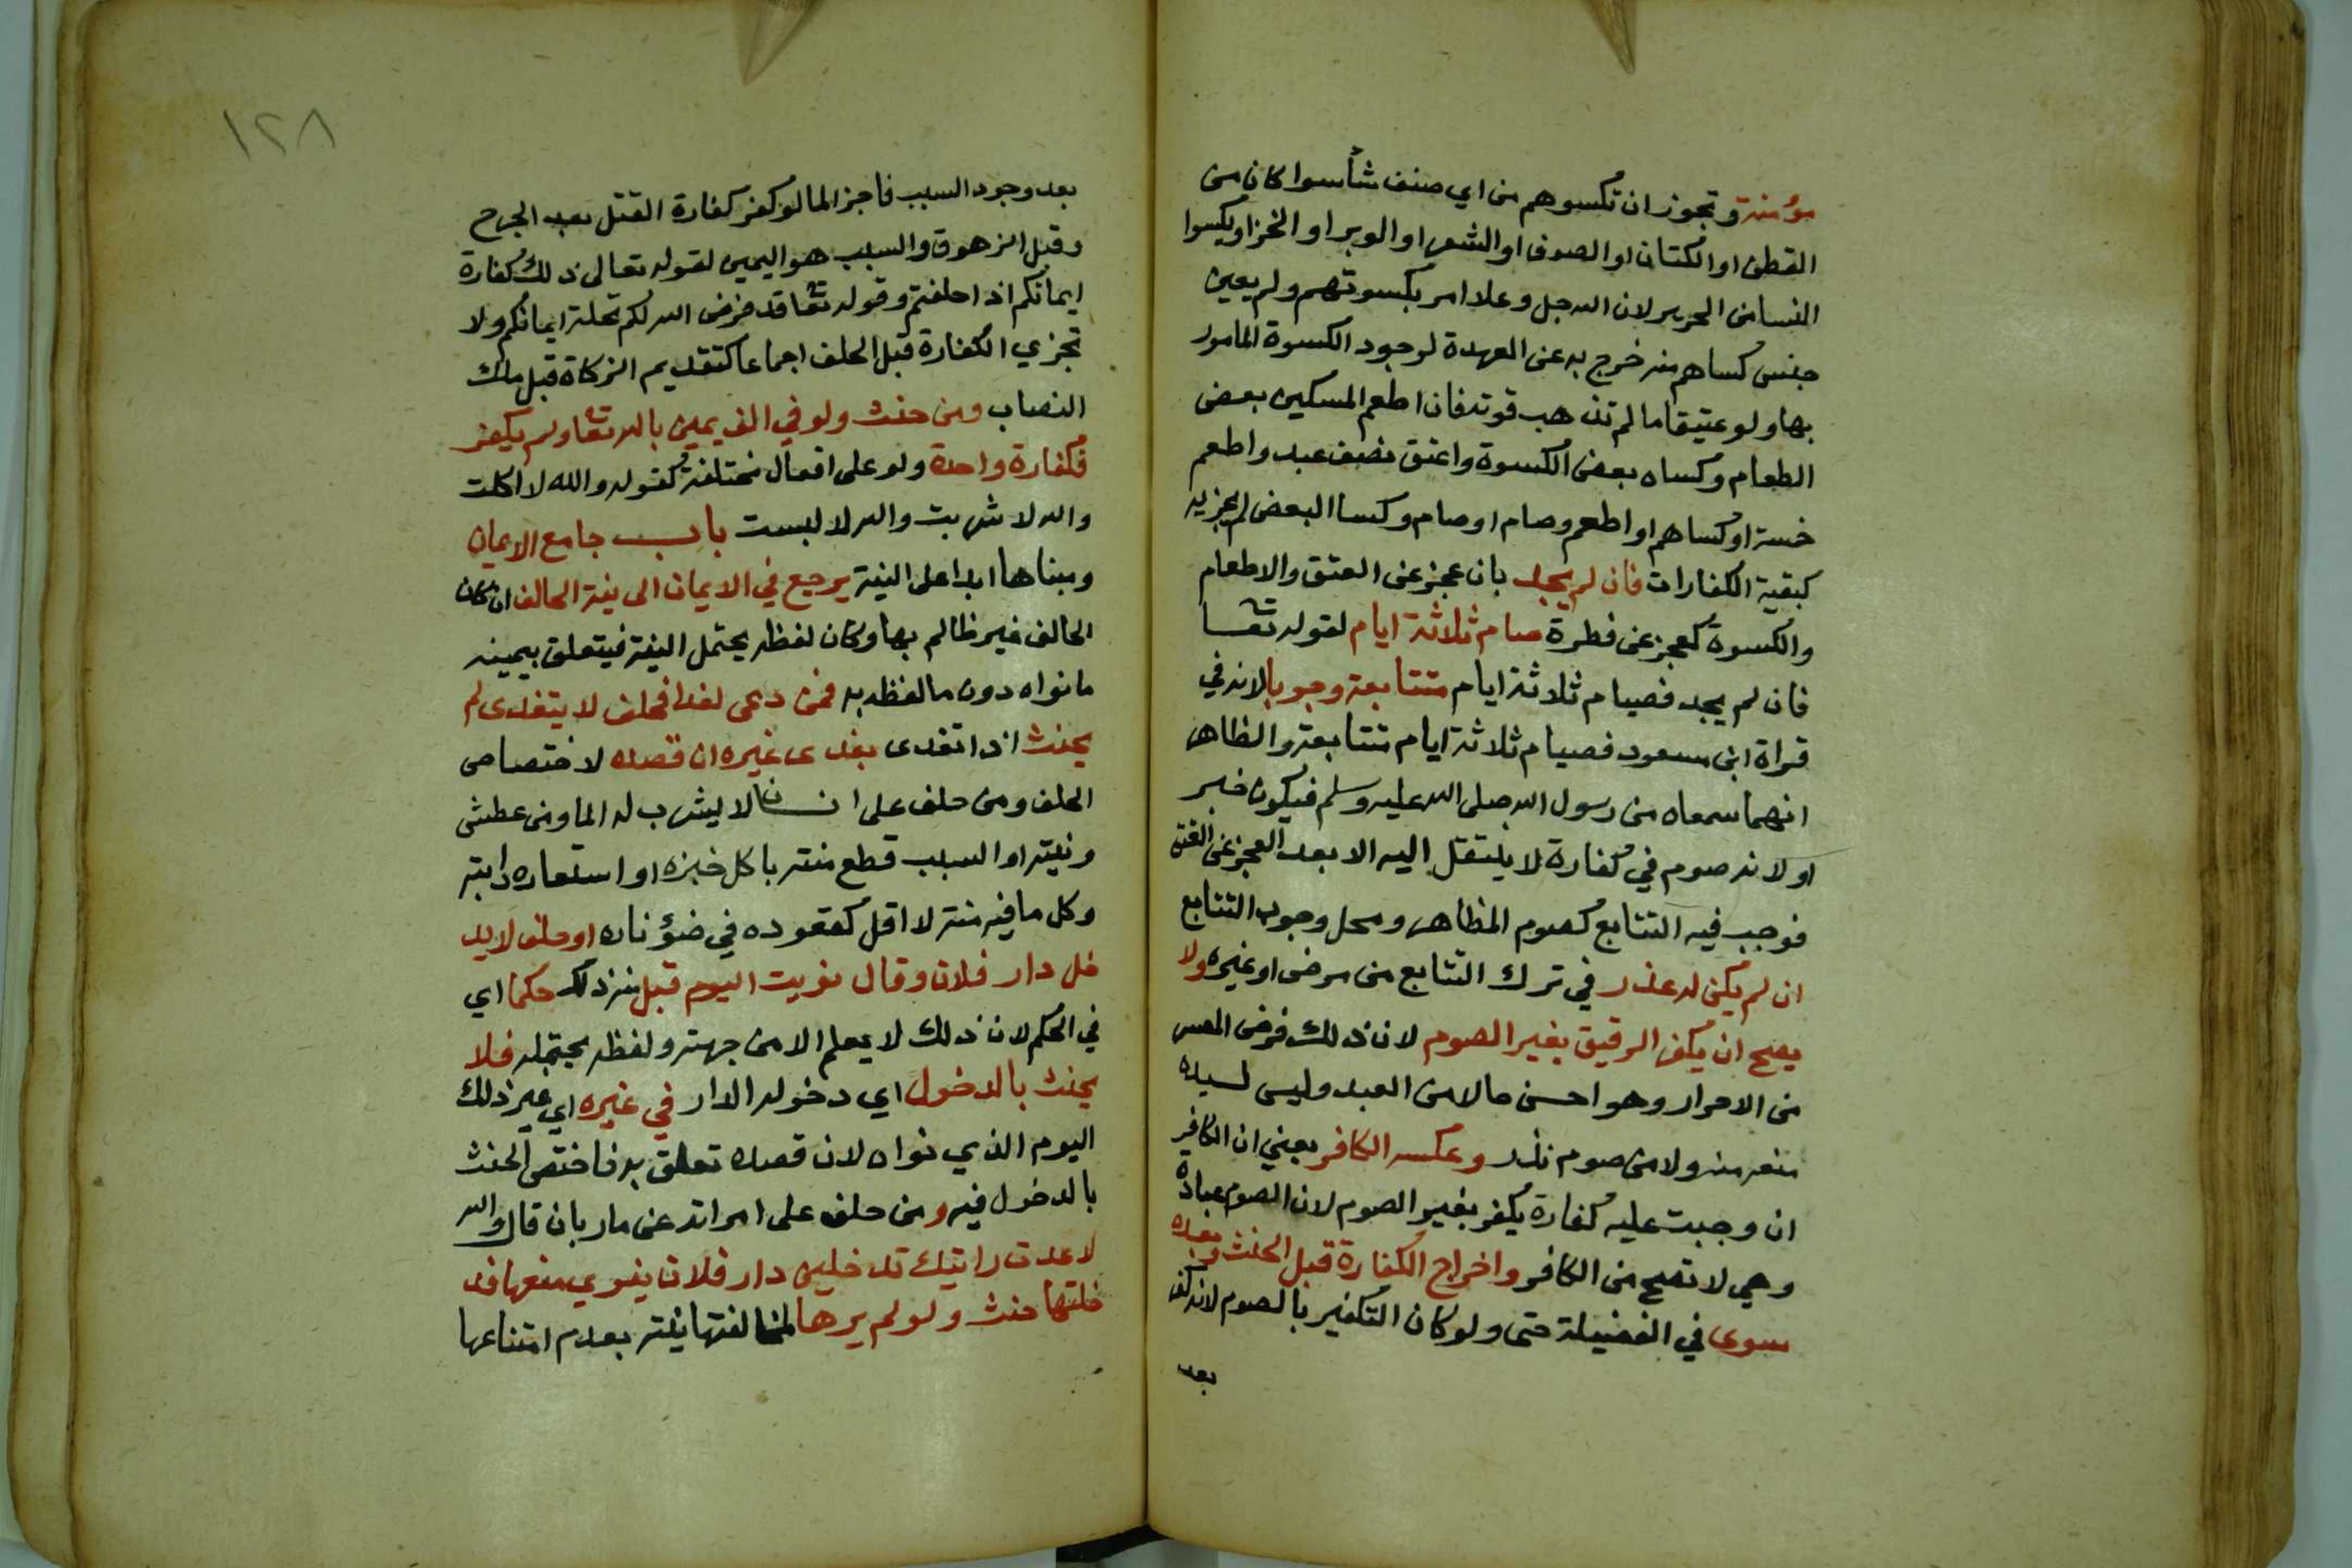 مؤمنة وتجوز ان تكسوهم من اي صنف شأسوا كان من
القطن او الكتان او الصوف او الشعر او الوبر او الخز او يكسوا
النسا من الحرير لان الله جل وعلا امر بكسوتهم ولم يعين
جنس كساهم منه خرج به عن العهدة لوجود الكسوة المامور
بها ولو عتيقا ما لم تذهب قوته فان اطعم المسكين بعض
الطعام وكساه بعض الكسوة واعتق نصف عبد واطعم
خمسة او كساهم او اطعم وصام او صام وكسا البعض لم يجزيه
كبقية الكفارات فان لم يجد بان عجز عن العتق والاطعام
والكسوة كعجز عن فطرة صام ثلاثة ايام لقوله تعا
فان لم يجد فصيام ثلاثة ايام متتابعة وجوبا لانه في
قراة ابن مسعود فصيام ثلاثة ايام متتابعة والظاهر
انهما سمعاه من رسول الله صلى الله عليه وسلم فيكون خبر
او لانه صوم في كفارة لا ينتقل اليه الا بعد العجز عن العتق
فوجب فيه التتابع كصوم المظاهر ومحل وجوب التتابع
ان لم يكن له عذر في ترك التتابع من مرض او غيره ولا
يصح ان يكفر الرقيق بغير الصوم لان ذلك فرض المعسر
من الاحرار وهو احسن حالا من العبد وليس لسيده
منعه منه ولا من صوم نذر وعكسه الكافر يعني ان الكافر
ان وجبت عليه كفارة يكفر بغير الصوم لان الصوم عبادة
وهي لا تصح من الكافر واخراج الكفارة قبل الحنث وبعده
سوى في الفضيلة حتى ولو كان التكفير بالصوم لانه كفر
بعد
١٢٨
بعد وجود السبب فاجزا لما لو كفر كفارة القتل بعد الجرح
وقبل الزهوق والسبب هو اليمين لقوله تعالى ذلك كفارة
ايمانكم اذا حلفتم وقوله تعا قد فرض الله لكم تحلة ايمانكم ولا
تجزي الكفارة قبل الحلف اجماعا كتقديم الزكاة قبل ملك
النصاب ومن حنث ولو في الف يمين بالله تعا ولم يكفر
فكفارة واحدة ولو على افعال مختلفة كقوله والله لا اكلت
والله لا شربت والله لا لبست باب جامع الايمان
ومبناها ابدا على النية يرجع في الايمان الى نية الحالف ان كان
الحالف غير ظالم بها وكان لفظه يحتمل النية فيتعلق بيمينه
ما نواه دون ما لفظه به فمن دعى لغدا فحلف لا يتغدى لم
يحنث اذا تغدى بغدى غيره ان قصده لاختصاص
الحلف ومن حلف على انسان لا يشرب له الما ومن عطش
ونيته او السبب قطع منته باكل خبزه او استعاره دابته
وكل ما فيه منة لا اقل كقعوده في ضؤ ناره او حلف لا يد
خل دار فلان وقال نويت اليوم قبل منه ذلك حكما اي
في الحكم لان ذلك لا يعلم الا من جهته ولفظه يحتمله فلا
يحنث بالدخول اي دخوله الدار في غيره اي غير ذلك
اليوم الذي نواه لان قصده تعلق به فاختص الحنث
بالدخول فيه ومن حلف على امراته عن مار بان قال والله
لا عدت رايتك تدخلين دار فلان ينوي منعها فد
خلتها حنث ولو لم يرها لمخالفتها نيته بعدم امتناعها